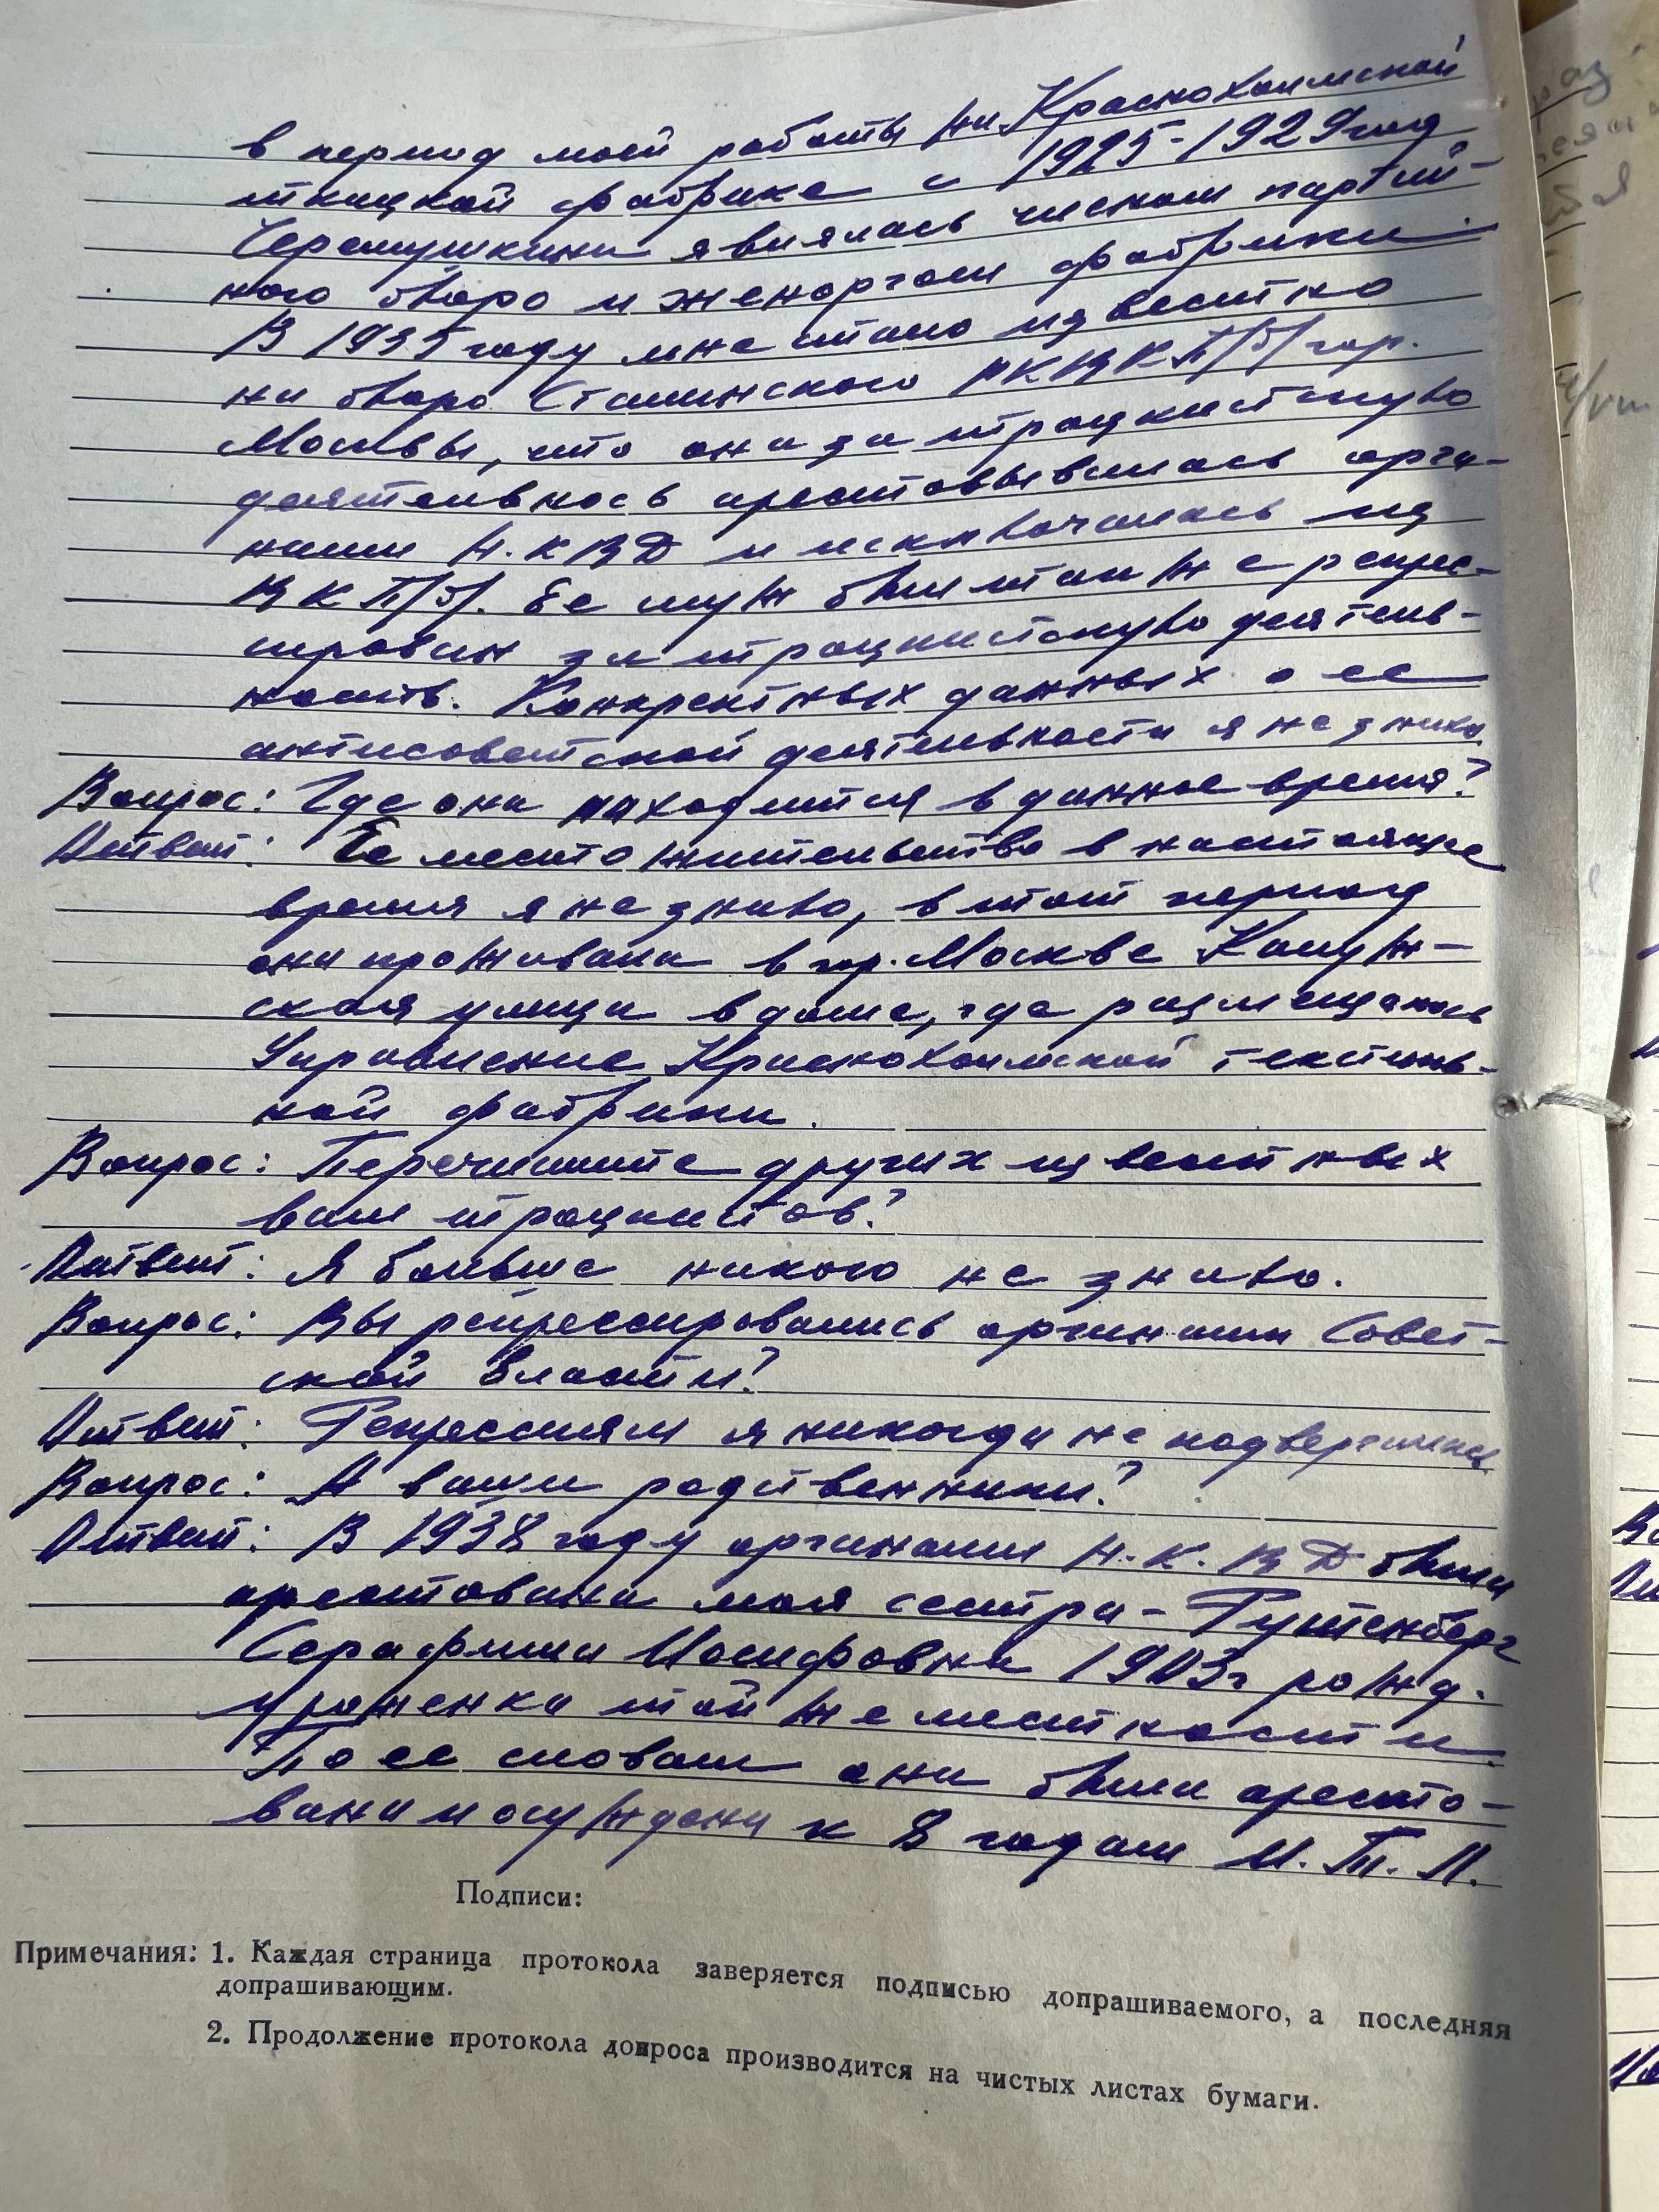 в период моей работы на Краснохолмской
ткацкой фабрике с 1925-1929 год
Черемушкина являлась членом партий-
ного бюро и женоргом фабрики.
В 1935 году мне стало известно
на бюро Сталинского РК ВКП/б/ гор.
Москвы, что она за троцкистскую
деятельность арестовывалась орга-
нами Н.КВД и исключалась из
ВКП/б/. Ее муж был также репрес-
сирован за троцкистскую деятель-
ность. Конкретных данных о ее
антисоветской деятельности я не знаю.
Вопрос: Где она находится в данное время?
Ответ: Ее место жительство в настоящее
время я не знаю, в тот период
она проживала в гор. Москве Калуж-
ская улица в доме, где размещалось
Управление Краснохолмской текстиль-
ной фабрики.
Вопрос: Перечислите других известных
вам троцкистов?
Ответ: Я больше никого не знаю.
Вопрос: Вы репрессировались органами Совет-
ской власти?
Ответ: Репрессиям я никогда не подвергалась.
Вопрос: А ваши родственники?
Ответ: В 1938 году органами Н.К.ВД была
арестована моя сестра - Рутенберг
Серафима Иосифовна 1903г рожд.
уроженка той же местности.
По ее словам она была аресто-
вана и осуждена к 8 годам И.Т.Л.
Подписи:
Примечания: 1. Каждая страница протокола заверяется подписью допрашиваемого, а последняя
допрашивающим.
2. Продолжение протокола допроса производится на чистых листах бумаги.